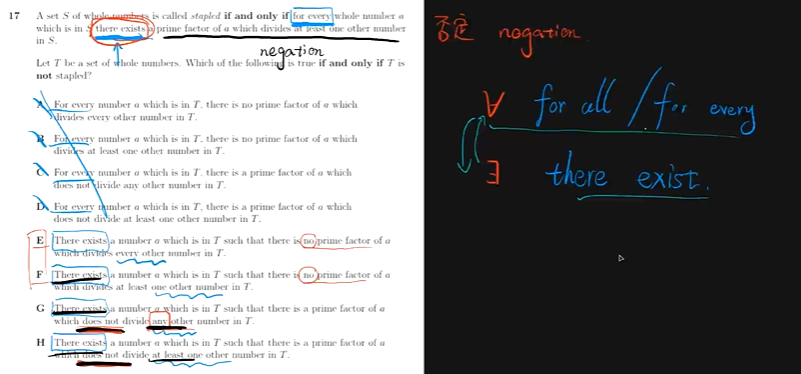 17 A set S of whole numbers is called stapled if and only if for every whole number a
which is in S there exists a prime factor of a which divides at least one other number
in S.
negation
Let T be a set of whole numbers. Which of the following is true if and only if T is
not stapled?
A For every number a which is in T, there is no prime factor of a which
divides every other number in T.
B For every number a which is in T, there is no prime factor of a which
divides at least one other number in T.
C For every number a which is in T, there is a prime factor of a which
does not divide any other number in T.
D For every number a which is in T, there is a prime factor of a which
does not divide at least one other number in T.
E There exists a number a which is in T such that there is no prime factor of a
which divides every other number in T.
F There exists a number a which is in T such that there is no prime factor of a
which divides at least one other number in T.
G There exists a number a which is in T such that there is a prime factor of a
which does not divide any other number in T.
H There exists a number a which is in T such that there is a prime factor of a
which does not divide at least one other number in T.
否定 negation.
∀ for all / for every
∃ there exist.